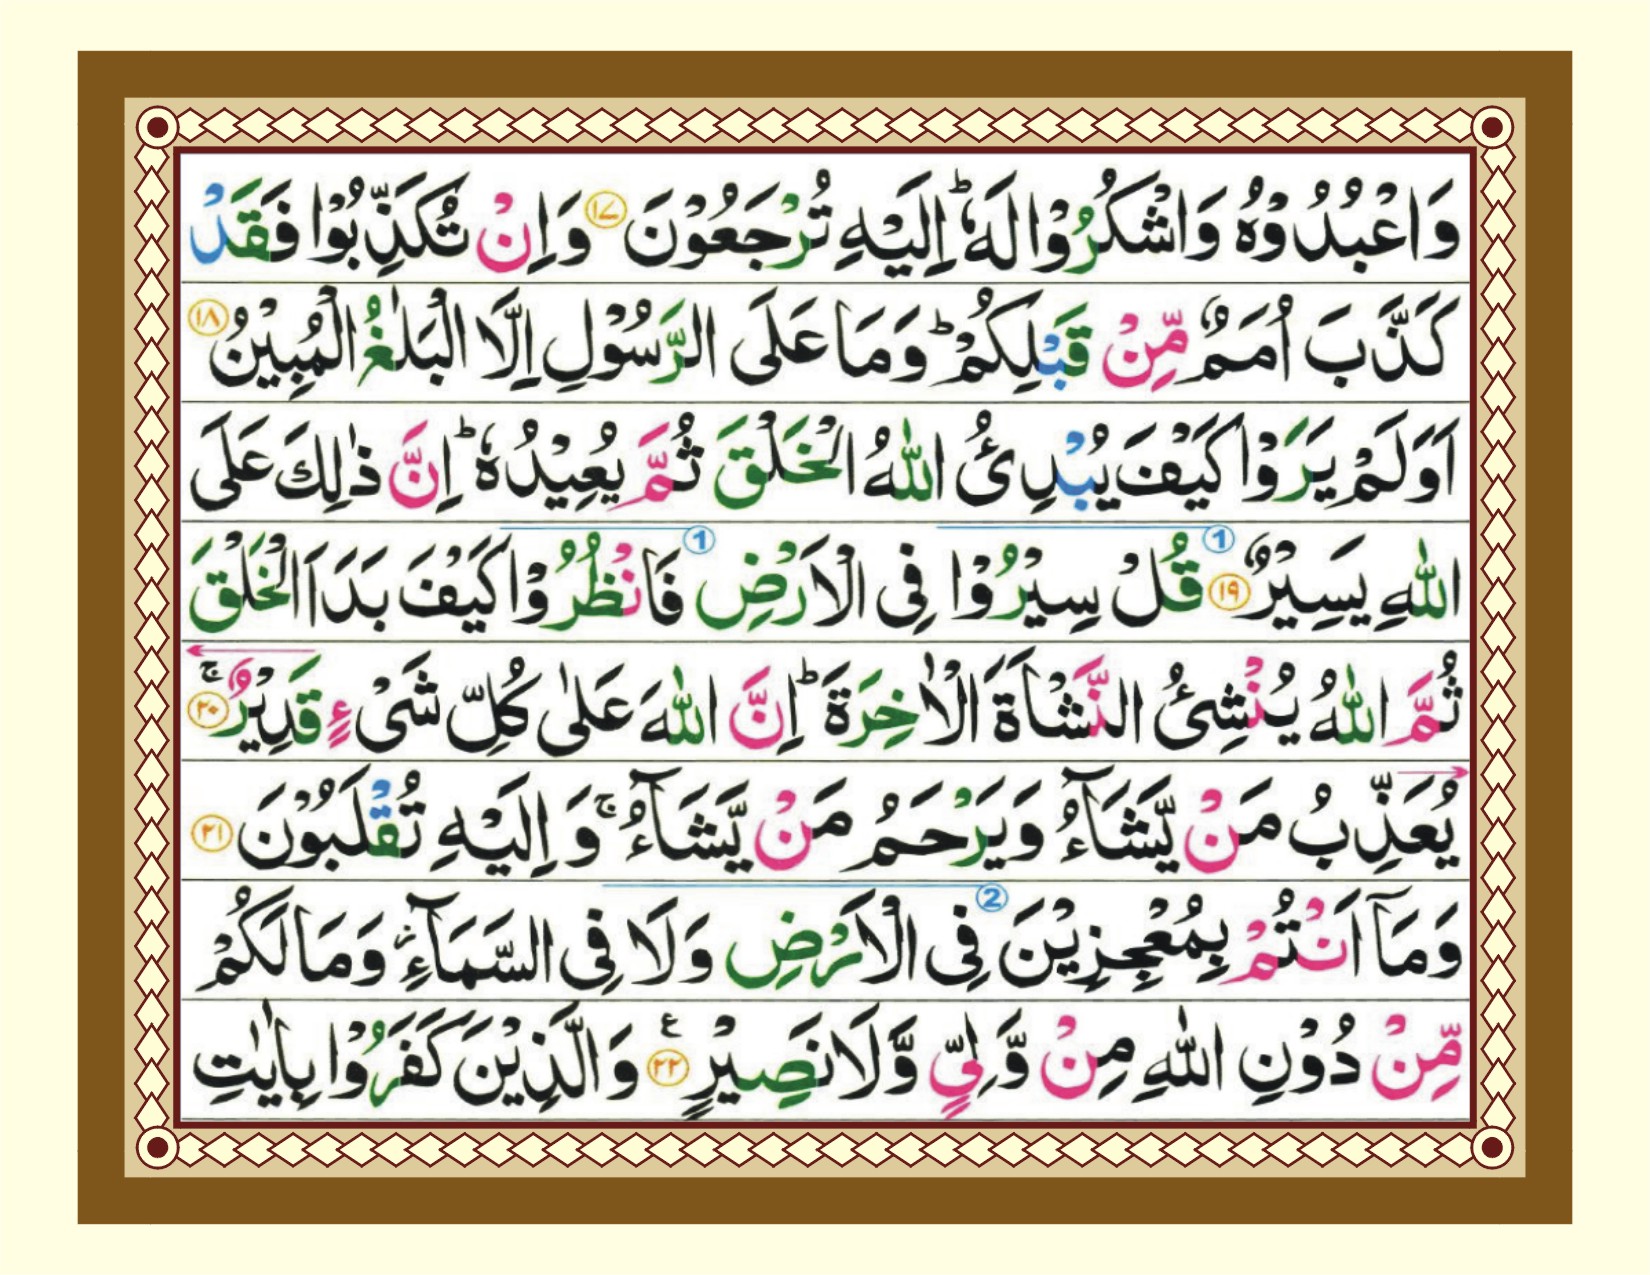 وَاعْبُدُوْهُ وَاشْكُرُوْا لَهٗ ؕ اِلَيْهِ تُرْجَعُوْنَ ۝۱۷ وَاِنْ تُكَذِّبُوْا فَقَدْ
كَذَّبَ اُمَمٌ مِّنْ قَبْلِكُمْ ؕ وَمَا عَلَى الرَّسُوْلِ اِلَّا الْبَلٰغُ الْمُبِيْنُ ۝۱۸
اَوَلَمْ يَرَوْا كَيْفَ يُبْدِئُ اللّٰهُ الْخَلْقَ ثُمَّ يُعِيْدُهٗ ؕ اِنَّ ذٰلِكَ عَلَى
اللّٰهِ يَسِيْرٌ ۝۱۹ ① قُلْ سِيْرُوْا فِى الْاَرْضِ ① فَانْظُرُوْا كَيْفَ بَدَاَ الْخَلْقَ
ثُمَّ اللّٰهُ يُنْشِئُ النَّشْاَةَ الْاٰخِرَةَ ؕ اِنَّ اللّٰهَ عَلٰى كُلِّ شَىْءٍ قَدِيْرٌ ۚ ۝۲۰
يُعَذِّبُ مَنْ يَّشَآءُ وَيَرْحَمُ مَنْ يَّشَآءُ ۚ وَاِلَيْهِ تُقْلَبُوْنَ ۝۲۱
وَمَآ اَنْتُمْ بِمُعْجِزِيْنَ ② فِى الْاَرْضِ وَلَا فِى السَّمَآءِ ز وَمَا لَكُمْ
مِّنْ دُوْنِ اللّٰهِ مِنْ وَّلِىٍّ وَّلَا نَصِيْرٍ ۝۲۲ ع وَالَّذِيْنَ كَفَرُوْا بِاٰيٰتِ